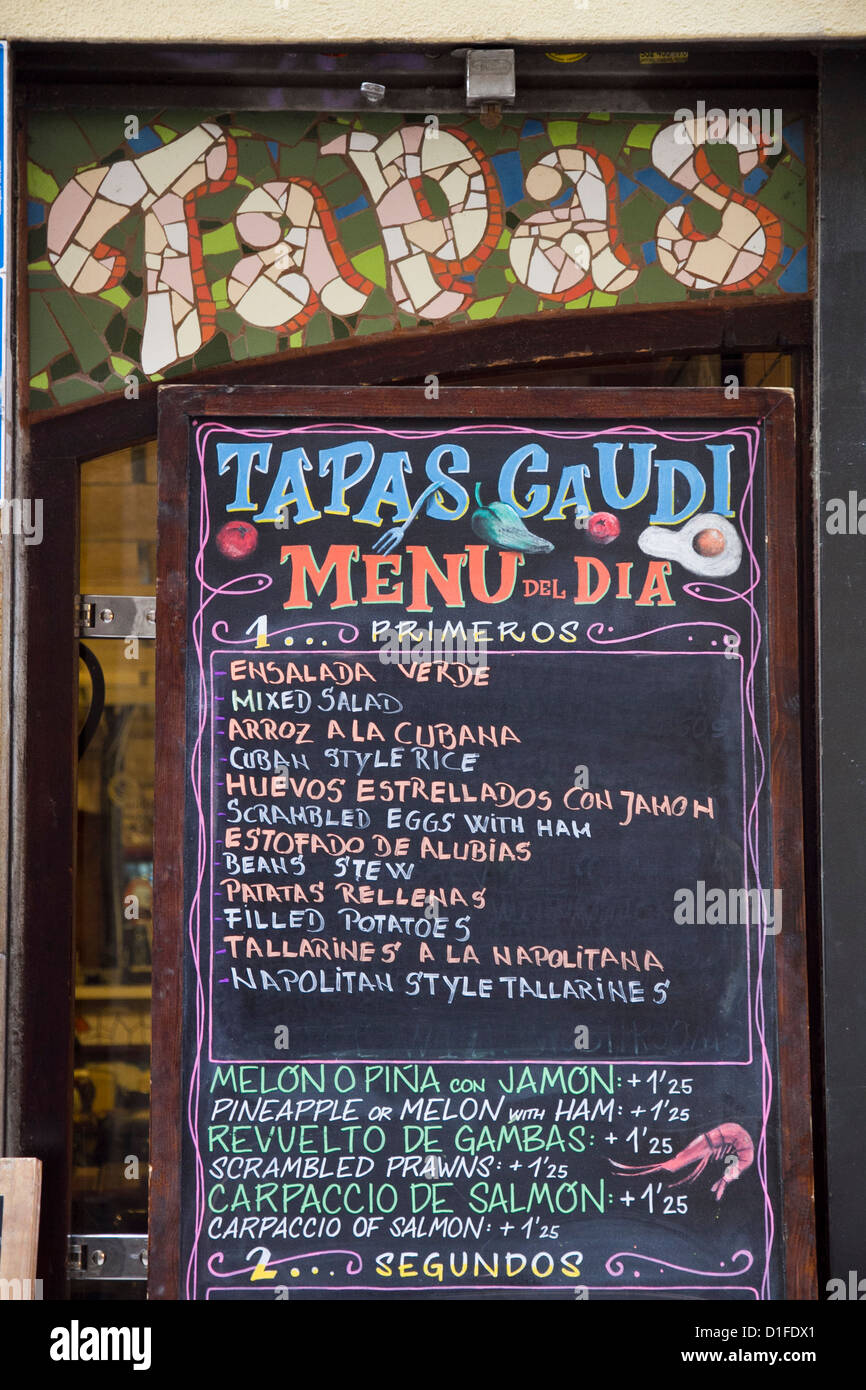 Tapas
TAPAS GAUDI
MENU DEL DIA
1... PRIMEROS
- ENSALADA VERDE
- MIXED SALAD
- ARROZ A LA CUBANA
- CUBAN STYLE RICE
- HUEVOS ESTRELLADOS CON JAMON
- SCRAMBLED EGGS WITH HAM
- ESTOFADO DE ALUBIAS
- BEANS STEW
- PATATAS RELLENAS
- FILLED POTATOES
- TALLARINES A LA NAPOLITANA
- NAPOLITAN STYLE TALLARINES
MELÓN O PIÑA CON JAMÓN: +1'25
PINEAPPLE OR MELON WITH HAM: +1'25
REVUELTO DE GAMBAS: +1'25
SCRAMBLED PRAWNS: +1'25
CARPACCIO DE SALMÓN: +1'25
CARPACCIO OF SALMON: +1'25
2... SEGUNDOS
alamy
Image ID: D1FDX1
www.alamy.com